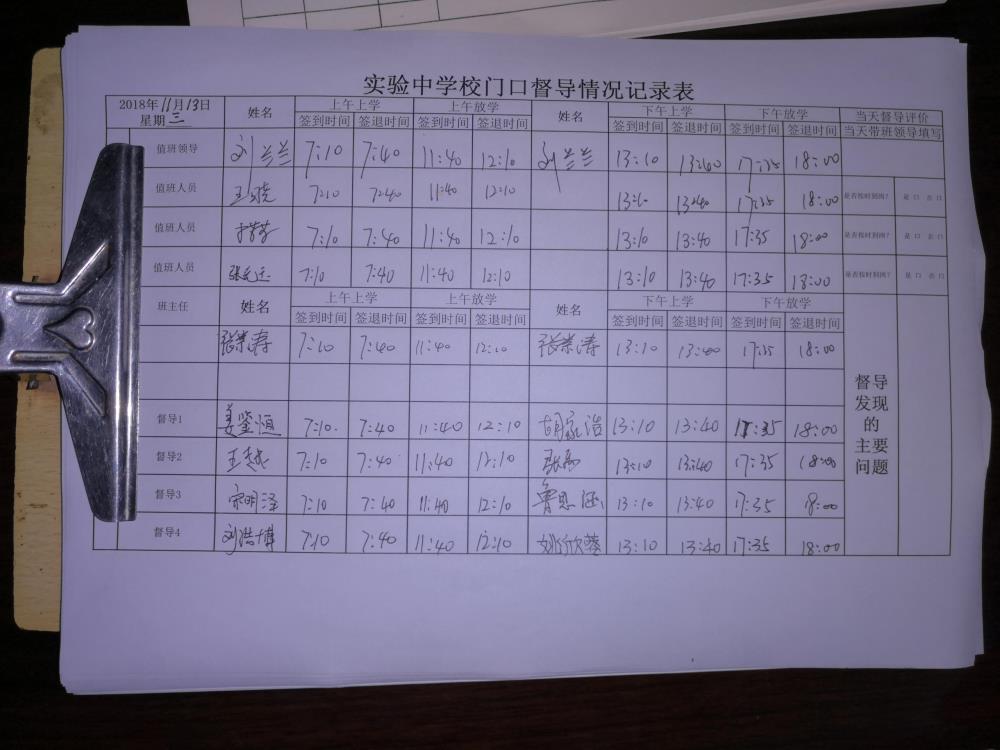 实验中学校门口督导情况记录表
2018年11月13日 星期三 姓名 上午上学 上午放学 姓名 下午上学 下午放学 当天督导评价
签到时间 签退时间 签到时间 签退时间 签到时间 签退时间 签到时间 签退时间 当天带班领导填写
值班领导 刘兰兰 7:10 7:40 11:40 12:10 刘兰兰 13:10 13:40 17:35 18:00
值班人员 7:10 7:40 11:40 12:10 13:10 13:40 17:35 18:00 是否按时到岗? 是 口 否 口
值班人员 7:10 7:40 11:40 12:10 13:10 13:40 17:35 18:00 是否按时到岗? 是 口 否 口
值班人员 7:10 7:40 11:40 12:10 13:10 13:40 17:35 18:00 是否按时到岗? 是 口 否 口
班主任 姓名 上午上学 上午放学 姓名 下午上学 下午放学
签到时间 签退时间 签到时间 签退时间 签到时间 签退时间 签到时间 签退时间
张崇涛 7:10 7:40 11:40 12:10 张崇涛 13:10 13:40 17:35 18:00
督导发现的主要问题
督导1 姜鉴恒 7:10 7:40 11:40 12:10 胡家浩 13:10 13:40 17:35 18:00
督导2 7:10 7:40 11:40 12:10 13:10 13:40 17:35 18:00
督导3 宋明泽 7:10 7:40 11:40 12:10 鲁思涵 13:10 13:40 17:35 18:00
督导4 刘浩博 7:10 7:40 11:40 12:10 姚欣蓉 13:10 13:40 17:35 18:00